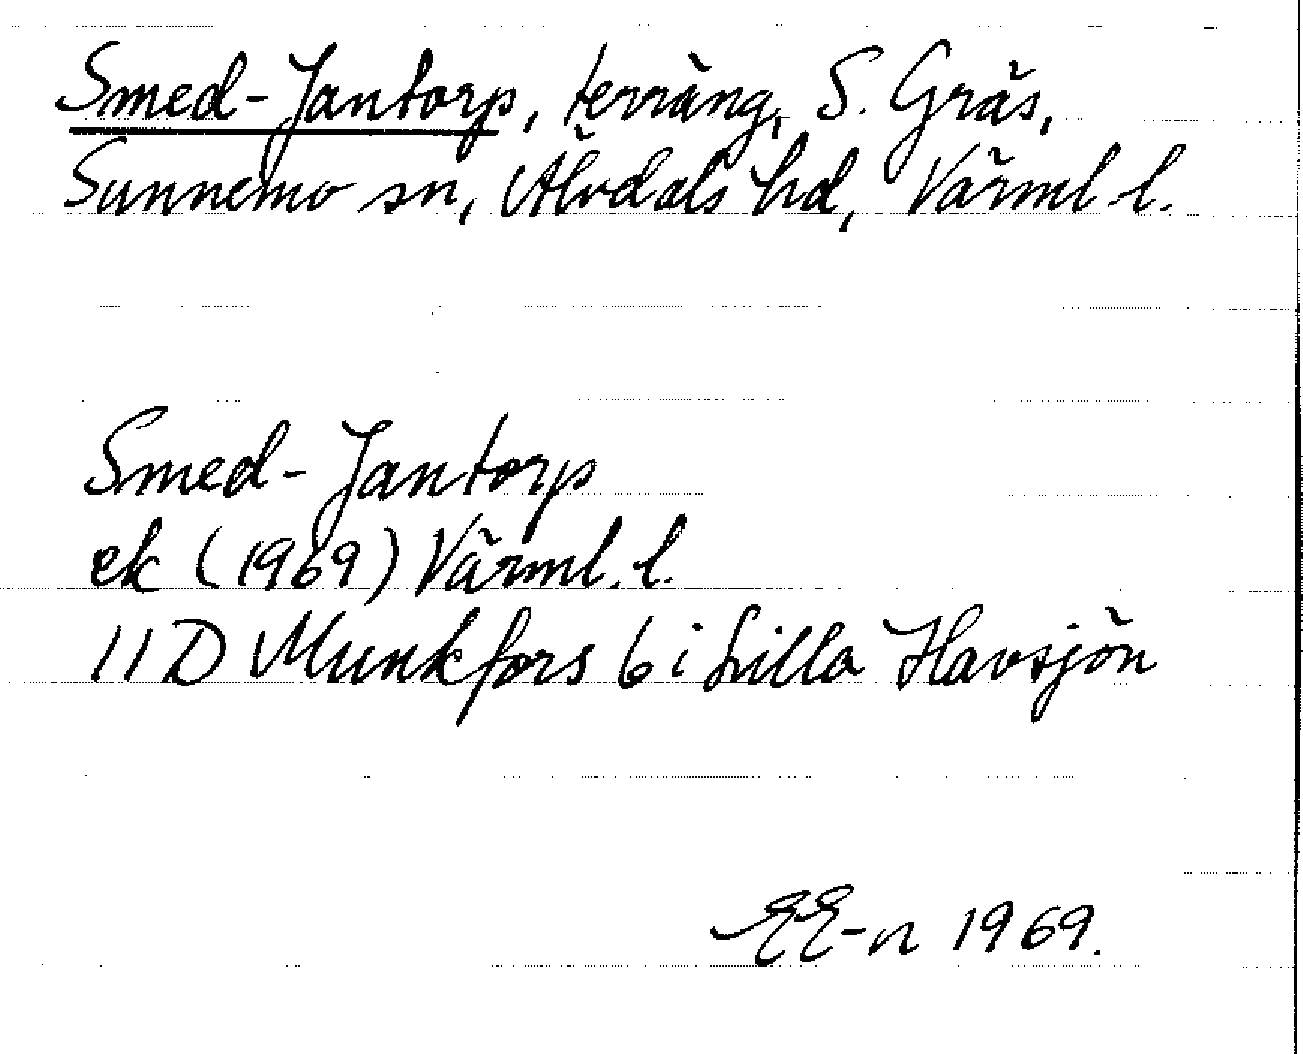 Smed-Jantorp, terräng, S. Gräs,
Sunnemo sn, Älvdals hd, Värml. l.
Smed-Jantorp
ek (1969) Värml. l.
11D Munkfors 6 i Lilla Havsjön
EE-n 1969.